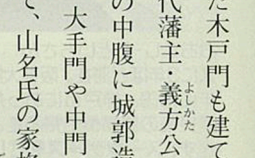 た木戸門も建て
代藩主・義方公
よしかた
の中腹に城郭造
大手門や中門
て、山名氏の家格